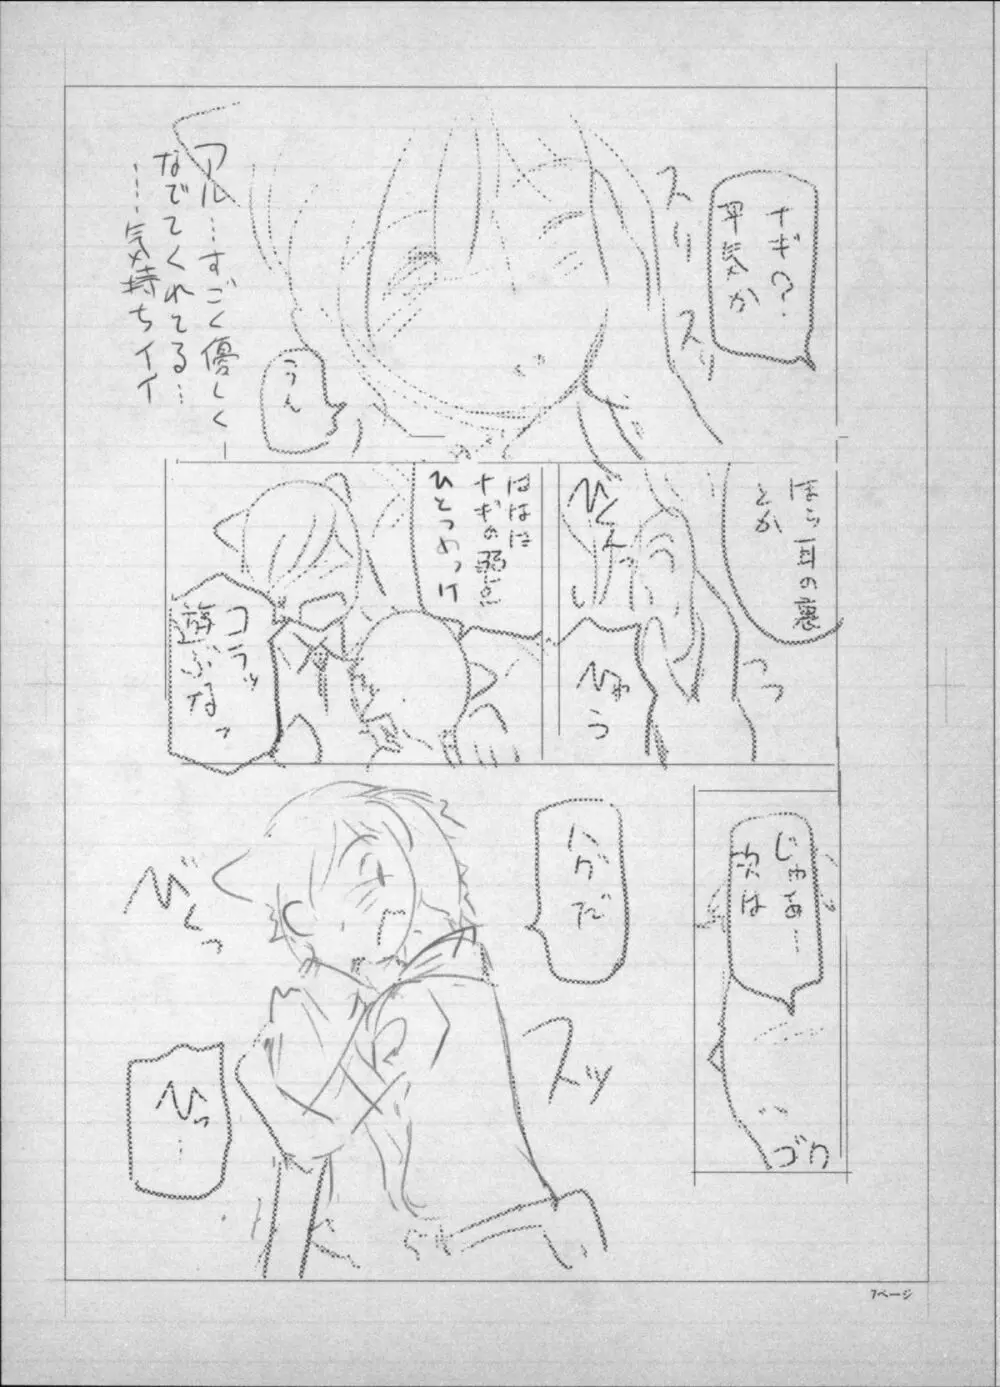 ナギ?
平気か
スリ
スリ
アル…すごく優しく
なでてくれてる…
……気持ちイイ
ううん
ほら耳の裏
とか
びくんっ
ひゅう
ははは
ナギの弱点
ひとつめっけ
コラッ
遊ぶなっ
じゃぁ…
次は
ゴク
ハグだ
スッ
びくっ
ひっ…
7ページ